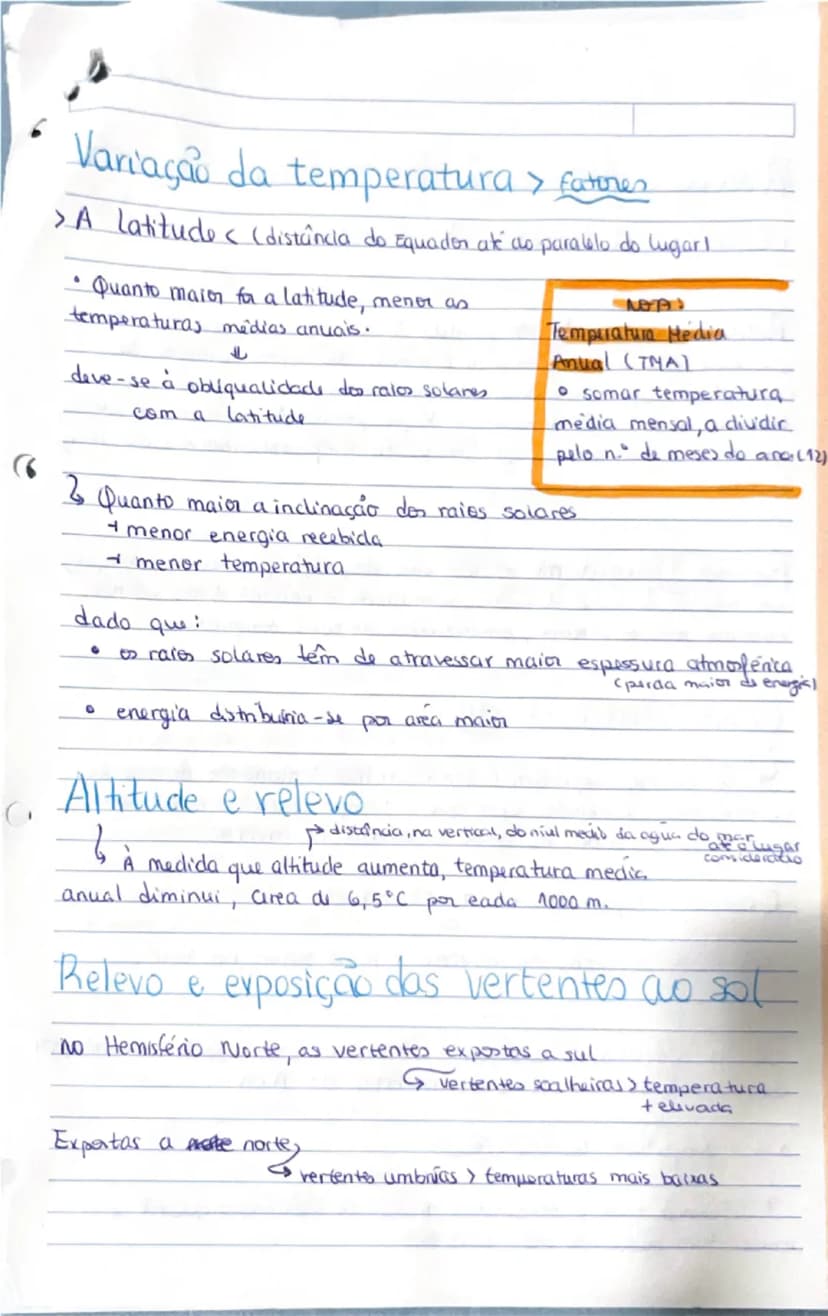 Variação da temperatura > fatores
> A latitude < (distância do Equador até ao paralelo do lugar)
• Quanto maior for a latitude, menor as
temperaturas médias anuais.
⇓
deve-se à obliqualidade dos raios solares
com a latitude
NOTA:
Temperatura Média
Anual (TMA)
• somar temperatura
média mensal, a dividir
pelo n.º de meses do ano (12)
↳ Quanto maior a inclinação dos raios solares
→ menor energia recebida
→ menor temperatura
dado que:
• os raios solares têm de atravessar maior espessura atmosférica
(perda maior de energia)
• energia distribuiria-se por área maior
Altitude e relevo
↱ distância, na vertical, do nível médio da água do mar
até o lugar
considerado
↳ À medida que altitude aumenta, temperatura media
anual diminui, cerca de 6,5°C por cada 1000 m.
Relevo e exposição das vertentes ao sol
no Hemisfério Norte, as vertentes expostas a sul
↳ vertentes soalheiras > temperatura
+ elevada
Expostas a norte,
↳ vertentes umbrias > temperaturas mais baixas